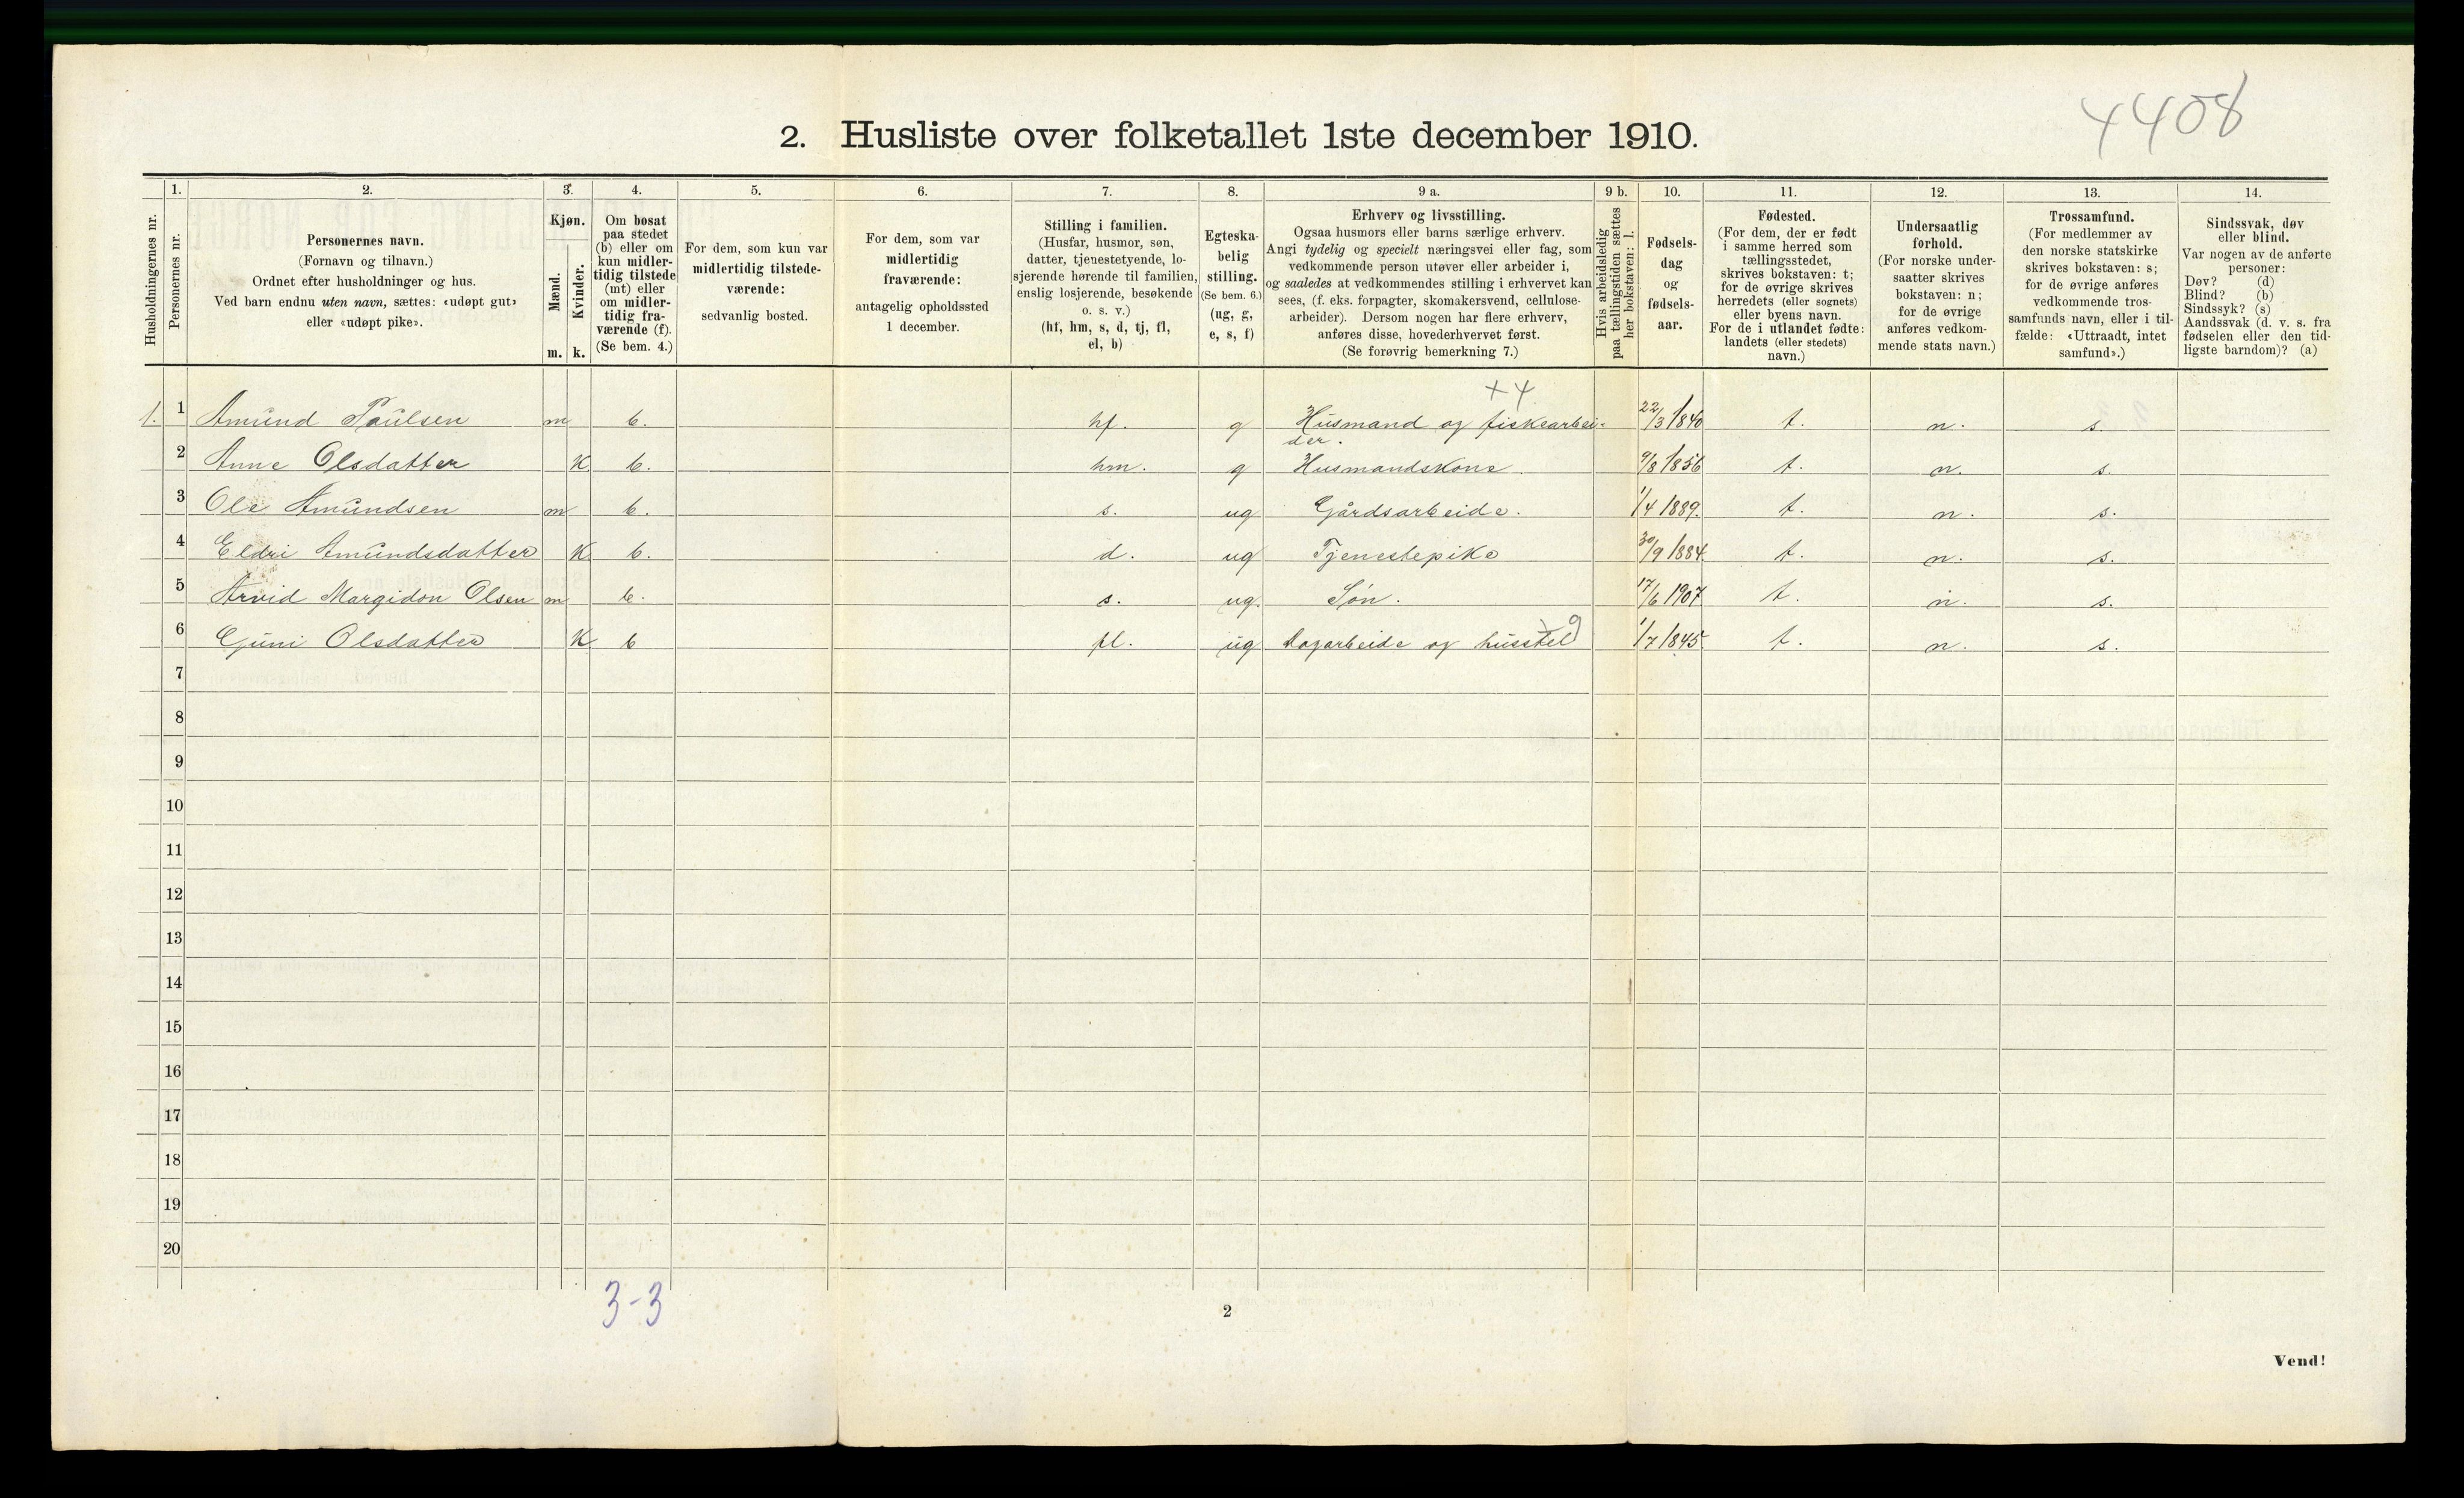 4408
2. Husliste over folketallet 1ste december 1910.
Husholdningernes nr.
1. Personernes nr.
2. Personernes navn. (Fornavn og tilnavn.) Ordnet efter husholdninger og hus. Ved barn endnu uten navn, sættes: «udøpt gut» eller «udøpt pike».
3. Kjøn. Mænd. m. Kvinder. k.
4. Om bosat paa stedet (b) eller om kun midlertidig tilstede (mt) eller om midlertidig fraværende (f). (Se bem. 4.)
5. For dem, som kun var midlertidig tilstedeværende: sedvanlig bosted.
6. For dem, som var midlertidig fraværende: antagelig opholdssted 1 december.
7. Stilling i familien. (Husfar, husmor, søn, datter, tjenestetyende, losjerende hørende til familien, enslig losjerende, besøkende o. s. v.) (hf, hm, s, d, tj, fl, el, b)
8. Egteskabelig stilling. (Se bem. 6.) (ug, g, e, s, f)
9 a. Erhverv og livsstilling. Ogsaa husmors eller barns særlige erhverv. Angi tydelig og specielt næringsvei eller fag, som vedkommende person utøver eller arbeider i, og saaledes at vedkommendes stilling i erhvervet kan sees, (f. eks. forpagter, skomakersvend, cellulosearbeider). Dersom nogen har flere erhverv, anføres disse, hovederhvervet først. (Se forøvrig bemerkning 7.)
9 b. Hvis arbeidsledig paa tællingstiden sættes her bokstaven: l.
10. Fødselsdag og fødselsaar.
11. Fødested. (For dem, der er født i samme herred som tællingsstedet, skrives bokstaven: t; for de øvrige skrives herredets (eller sognets) eller byens navn. For de i utlandet fødte: landets (eller stedets) navn.)
12. Undersaatlig forhold. (For norske undersaatter skrives bokstaven: n; for de øvrige anføres vedkommende stats navn.)
13. Trossamfund. (For medlemmer av den norske statskirke skrives bokstaven: s; for de øvrige anføres vedkommende trossamfunds navn, eller i tilfælde: «Uttraadt, intet samfund».)
14. Sindssvak, døv eller blind. Var nogen av de anførte personer: Døv? (d) Blind? (b) Sindssyk? (s) Aandssvak (d. v. s. fra fødselen eller den tidligste barndom)? (a)
+4
1. 1 Amund Paulsen m b. hf. g Husmand og fiskearbeider. 22/3 1840 t. n. s.
2 Anne Olsdatter K b. hm. g Husmandskone. 9/8 1856 t. n. s.
3 Ole Amundsen m b. s. ug Gårdsarbeide. 1/4 1889. t. n. s.
4 Eldri Amundsdatter K b. d. ug Tjenestepike 30/9 1884 t. n. s.
5 Arvid Margidon Olsen m b. s. ug. Søn. 17/6 1907 t. n. s.
6 Guni Olsdatter K b fl. ug Dagarbeide og husstel 1/7 1845. t. n. s.
7
8
9
10
11
12
13
14
15
16
17
18
19
20
3-3
2
Vend!